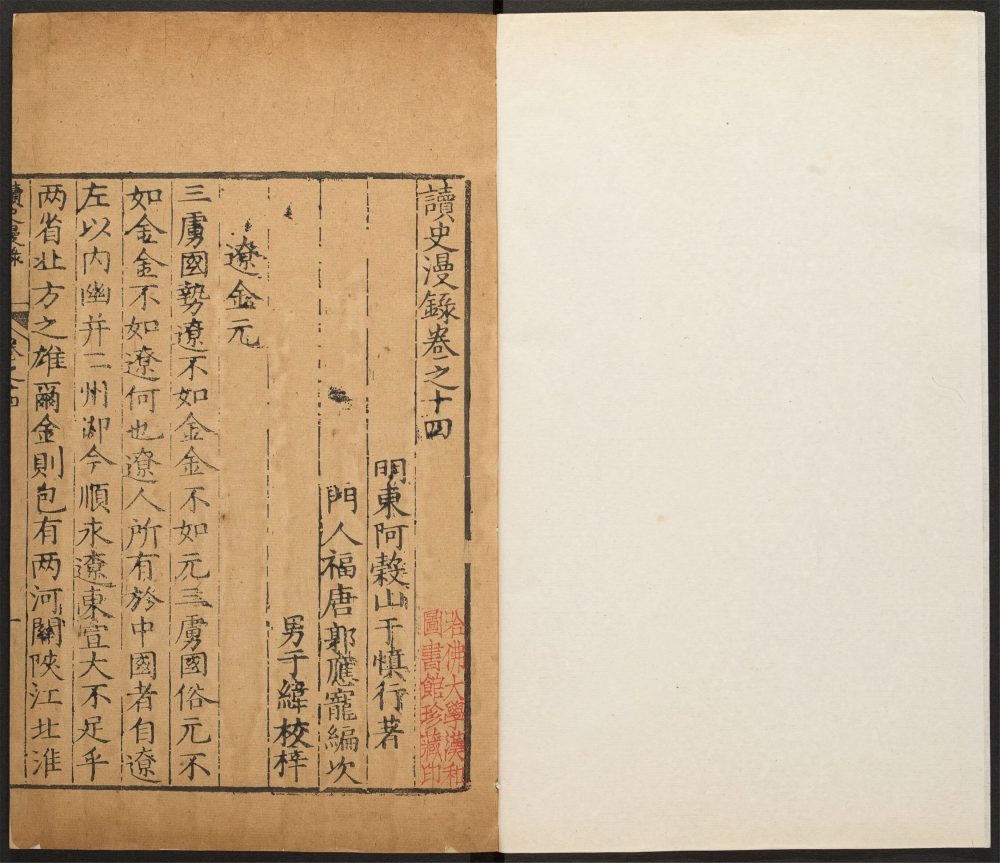 讀史漫錄卷之十四
明東阿穀山于慎行著
門人福唐郭應寵編次
男于緯校梓
遼金元
三虜國勢遼不如金金不如元三虜國俗元不
如金金不如遼何也遼人所有於中國者自遼
左以内幽并二州卽今順永遼東宣大不足乎
两省北方之雄爾金則包有两河關陝江北淮
讀史漫錄
卷之十四
一
哈佛大學漢和
圖書館珍藏印